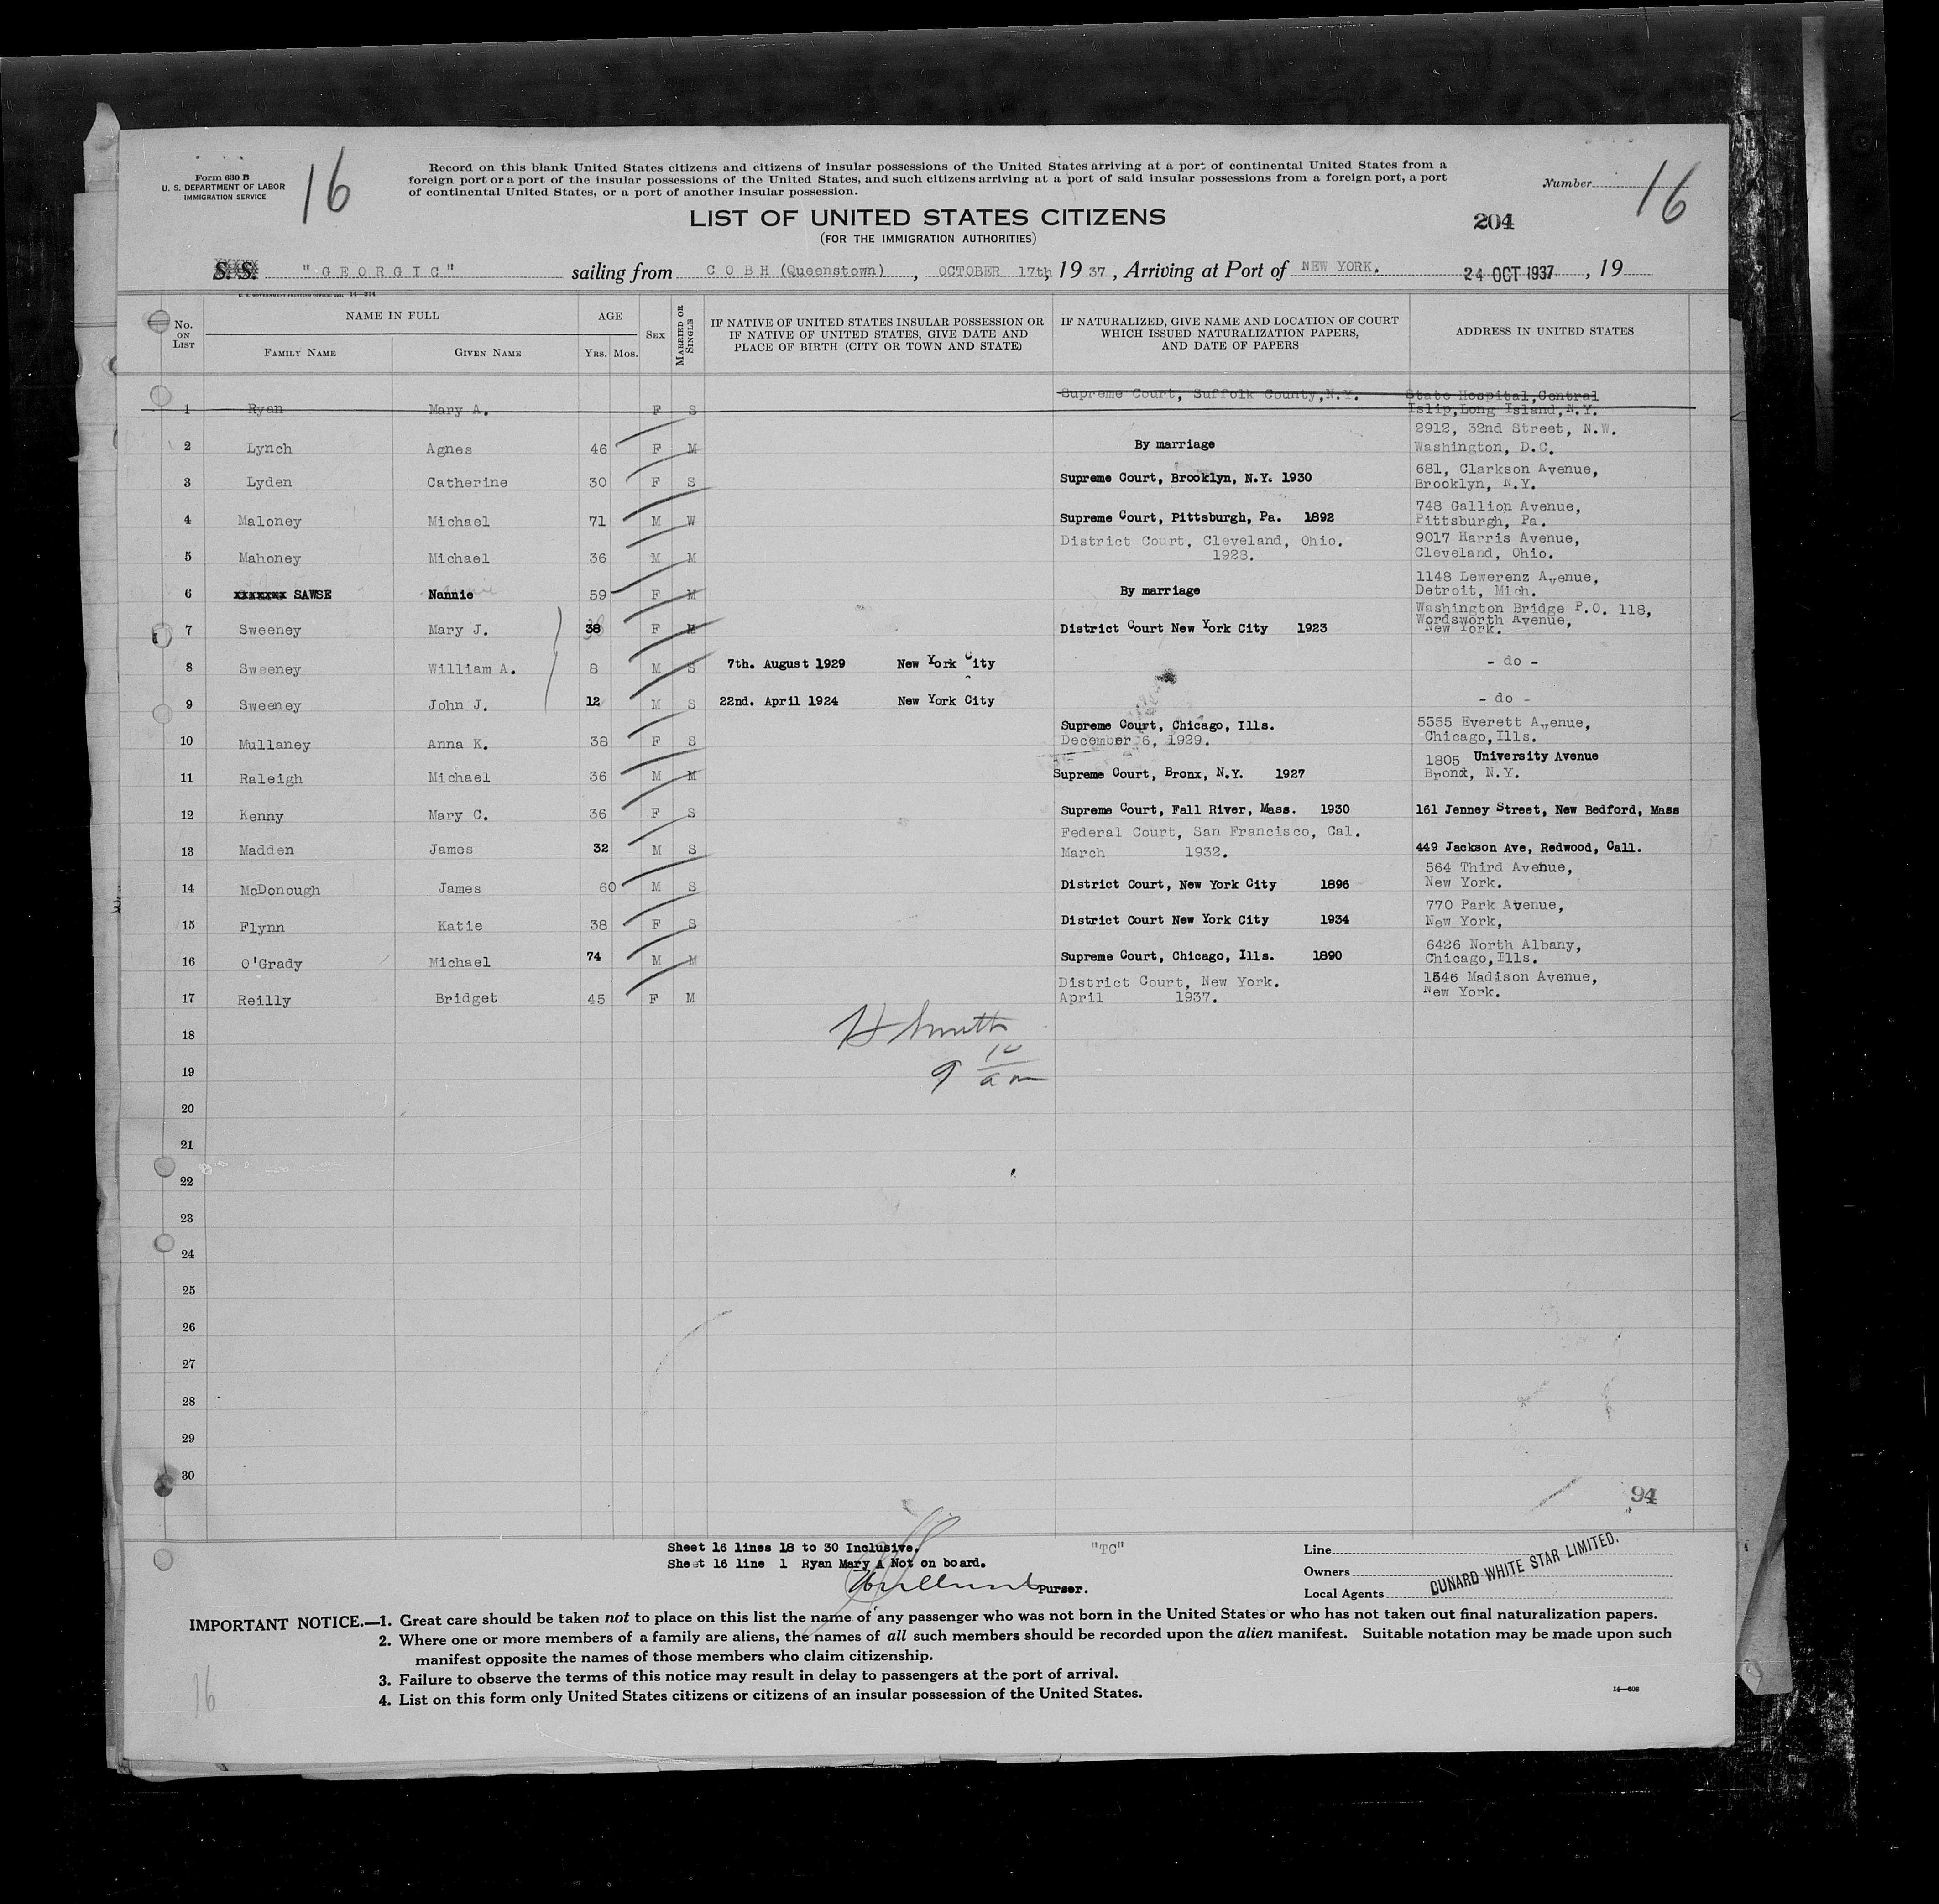 Form 630 B
U. S. DEPARTMENT OF LABOR
IMMIGRATION SERVICE
16
Record on this blank United States citizens and citizens of insular possessions of the United States arriving at a port of continental United States from a
foreign port or a port of the insular possessions of the United States, and such citizens arriving at a port of said insular possessions from a foreign port, a port
of continental United States, or a port of another insular possession.
Number 16
LIST OF UNITED STATES CITIZENS
(FOR THE IMMIGRATION AUTHORITIES)
204
S. S. "GEORGIC" sailing from COBH (Queenstown), OCTOBER 17th, 1937, Arriving at Port of NEW YORK. 24 OCT 1937, 19
U. S. GOVERNMENT PRINTING OFFICE: 1931 14—214
No. ON LIST
NAME IN FULL
FAMILY NAME GIVEN NAME
AGE
YRS. MOS.
SEX
MARRIED OR SINGLE
IF NATIVE OF UNITED STATES INSULAR POSSESSION OR
IF NATIVE OF UNITED STATES, GIVE DATE AND
PLACE OF BIRTH (CITY OR TOWN AND STATE)
IF NATURALIZED, GIVE NAME AND LOCATION OF COURT
WHICH ISSUED NATURALIZATION PAPERS,
AND DATE OF PAPERS
ADDRESS IN UNITED STATES
1 Ryan Mary A. F S Supreme Court, Suffolk County,N.Y. State Hospital,Central
Islip,Long Island,N.Y.
2 Lynch Agnes 46 F M By marriage 2912, 32nd Street, N.W.
Washington, D.C.
3 Lyden Catherine 30 F S Supreme Court, Brooklyn, N.Y. 1930 681, Clarkson Avenue,
Brooklyn, N.Y.
4 Maloney Michael 71 M W Supreme Court, Pittsburgh, Pa. 1892 748 Gallion Avenue,
Pittsburgh, Pa.
5 Mahoney Michael 36 M M District Court, Cleveland, Ohio.
1928. 9017 Harris Avenue,
Cleveland, Ohio.
6 xxxxxxx SAWSE Nannie 59 F M By marriage 1148 Lewerenz Avenue,
Detroit, Mich.
7 Sweeney Mary J. 38 F M District Court New York City 1923 Washington Bridge P.O. 118,
Wordsworth Avenue,
New York.
8 Sweeney William A. 8 M S 7th. August 1929 New York City - do -
9 Sweeney John J. 12 M S 22nd. April 1924 New York City - do -
10 Mullaney Anna K. 38 F S Supreme Court, Chicago, Ills.
December 6, 1929. 5355 Everett Avenue,
Chicago,Ills.
11 Raleigh Michael 36 M M Supreme Court, Bronx, N.Y. 1927 1805 University Avenue
Bronx, N.Y.
12 Kenny Mary C. 36 F S Supreme Court, Fall River, Mass. 1930 161 Jenney Street, New Bedford, Mass
13 Madden James 32 M S Federal Court, San Francisco, Cal.
March 1932. 449 Jackson Ave, Redwood, Call.
14 McDonough James 60 M S District Court, New York City 1896 564 Third Avenue,
New York.
15 Flynn Katie 38 F S District Court New York City 1934 770 Park Avenue,
New York,
16 O'Grady Michael 74 M M Supreme Court, Chicago, Ills. 1890 6426 North Albany,
Chicago,Ills.
17 Reilly Bridget 45 F M District Court, New York.
April 1937. 1546 Madison Avenue,
New York.
18
H Smith
19
9 10
am
20
21
22
23
24
25
26
27
28
29
30
94
Sheet 16 lines 18 to 30 Inclusive.
Sheet 16 line 1 Ryan Mary A Not on board.
Purser.
"TC"
Line
Owners
Local Agents
CUNARD WHITE STAR LIMITED.
IMPORTANT NOTICE.—1. Great care should be taken not to place on this list the name of any passenger who was not born in the United States or who has not taken out final naturalization papers.
2. Where one or more members of a family are aliens, the names of all such members should be recorded upon the alien manifest. Suitable notation may be made upon such
manifest opposite the names of those members who claim citizenship.
3. Failure to observe the terms of this notice may result in delay to passengers at the port of arrival.
4. List on this form only United States citizens or citizens of an insular possession of the United States.
14—606
16